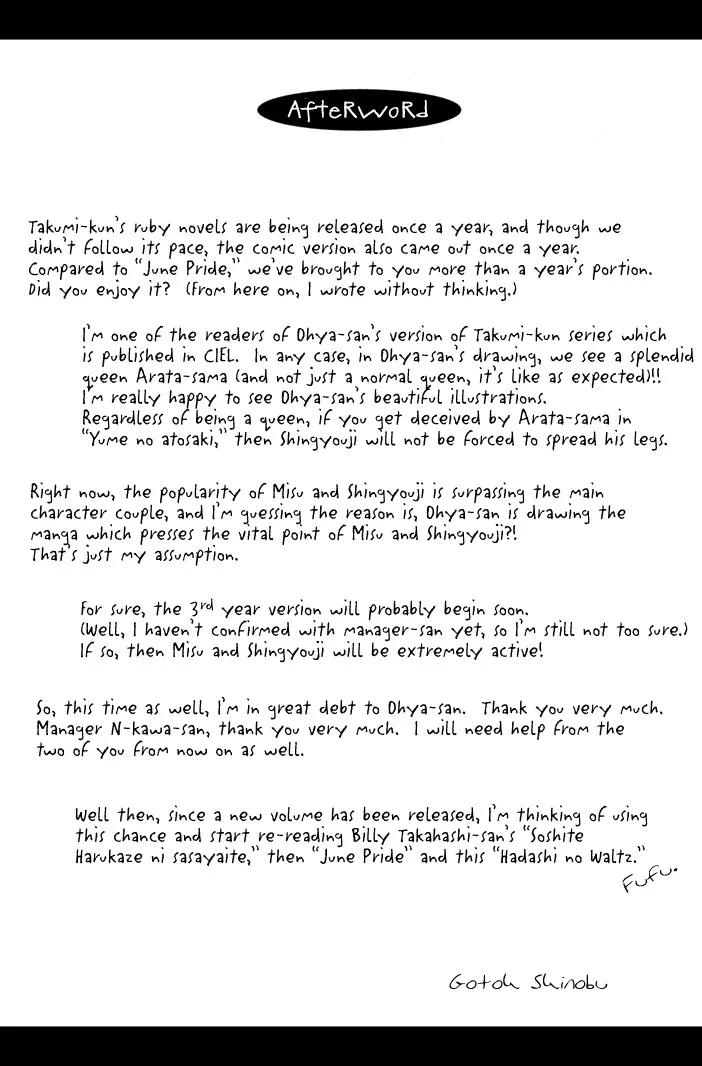 AfteRwoRd
Takumi-kun's ruby novels are being released once a year, and though we
didn't follow its pace, the comic version also came out once a year.
Compared to "June Pride," we've brought to you more than a year's portion.
Did you enjoy it? (From here on, I wrote without thinking.)
I'm one of the readers of Ohya-san's version of Takumi-kun series which
is published in CIEL. In any case, in Ohya-san's drawing, we see a splendid
queen Arata-sama (and not just a normal queen, it's like as expected)!!
I'm really happy to see Ohya-san's beautiful illustrations.
Regardless of being a queen, if you get deceived by Arata-sama in
"Yume no atosaki," then Shingyouji will not be forced to spread his legs.
Right now, the popularity of Misu and Shingyouji is surpassing the main
character couple, and I'm guessing the reason is, Ohya-san is drawing the
manga which presses the vital point of Misu and Shingyouji?!
That's just my assumption.
For sure, the 3rd year version will probably begin soon.
(Well, I haven't confirmed with manager-san yet, so I'm still not too sure.)
If so, then Misu and Shingyouji will be extremely active!
So, this time as well, I'm in great debt to Ohya-san. Thank you very much.
Manager N-kawa-san, thank you very much. I will need help from the
two of you from now on as well.
Well then, since a new volume has been released, I'm thinking of using
this chance and start re-reading Billy Takahashi-san's "Soshite
Harukaze ni sasayaite," then "June Pride" and this "Hadashi no Waltz."
Fufu.
Gotoh Shinobu